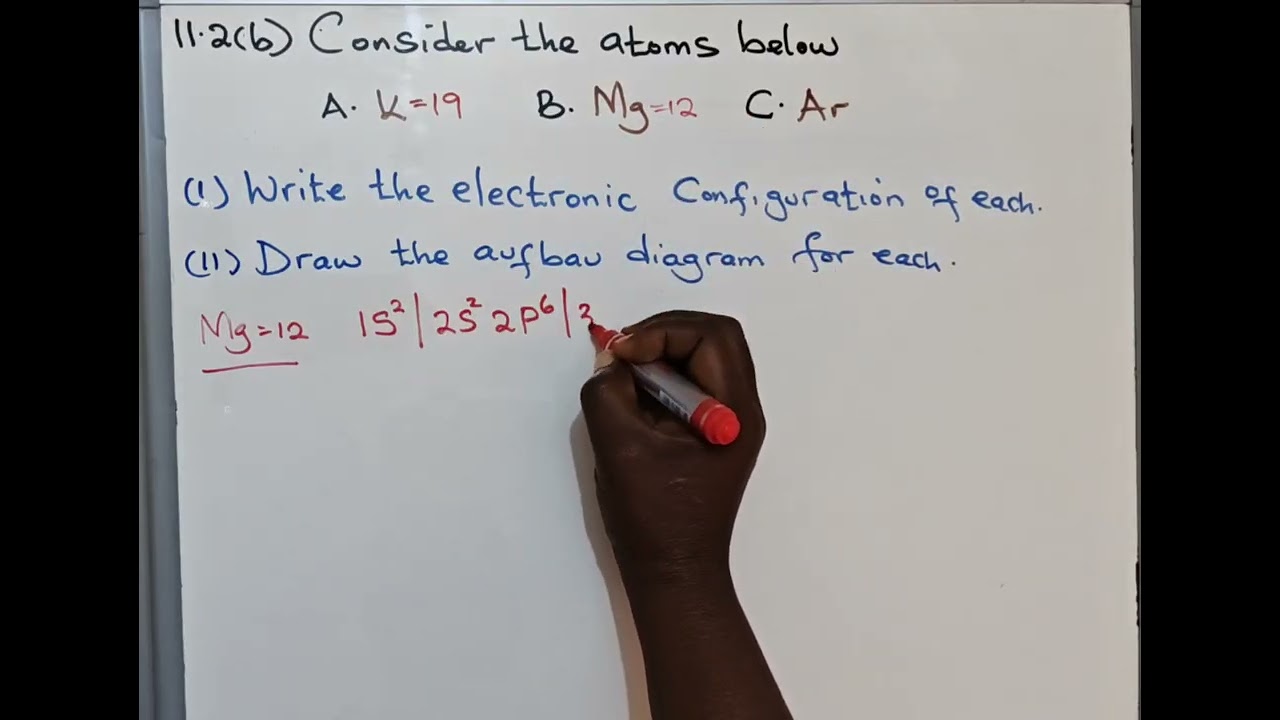 11.2(b) Consider the atoms below
A. K=19 B. Mg=12 C. Ar
(I) Write the electronic Configuration of each.
(II) Draw the aufbau diagram for each.
Mg=12 1S² | 2S² 2P⁶ | 3